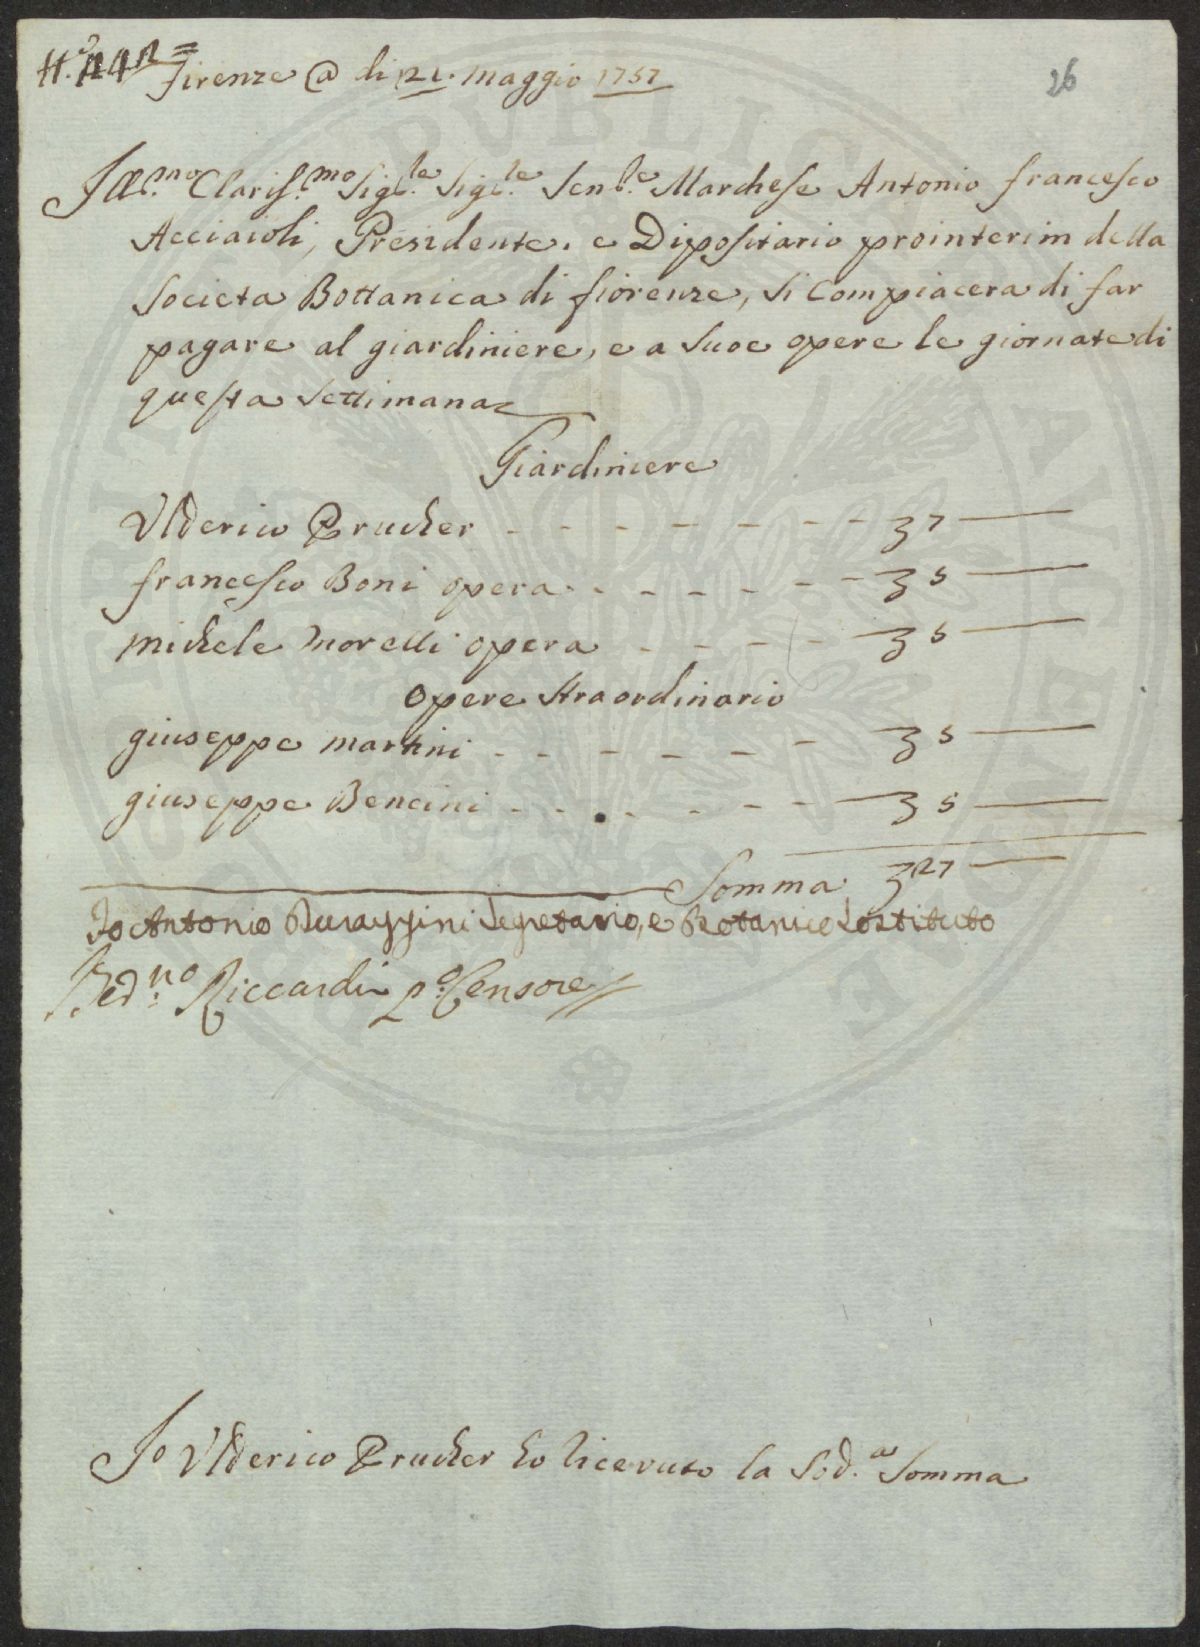 Firenze @ di 21. Maggio 1757
26
Ill.mo Clariss.mo Sig.le Sig.le Sen.le Marchese Antonio francesco
Acciaioli, Presidente. e Dipositario prointerim della
Societa Bottanica di fiorenze, si Compiacera di far
pagare al giardiniere, e a Suoe opere le giornate di
questa Settimana
Giardiniere
Ulderico Prucker - - - - - - - 37
francesco Boni opera - - - - - - 35
michele Morelli opera - - - - 35
Opere Straordinario
giuseppe martini - - - - - - 35
giuseppe Bencini - - - - - - 35
Somma 327
Io Antonio Segretario, e Botanico Sostituto
Bed.no Riccardi p.o Censore
Io Ulderico Prucker ho Ricevuto la Sod.a Somma